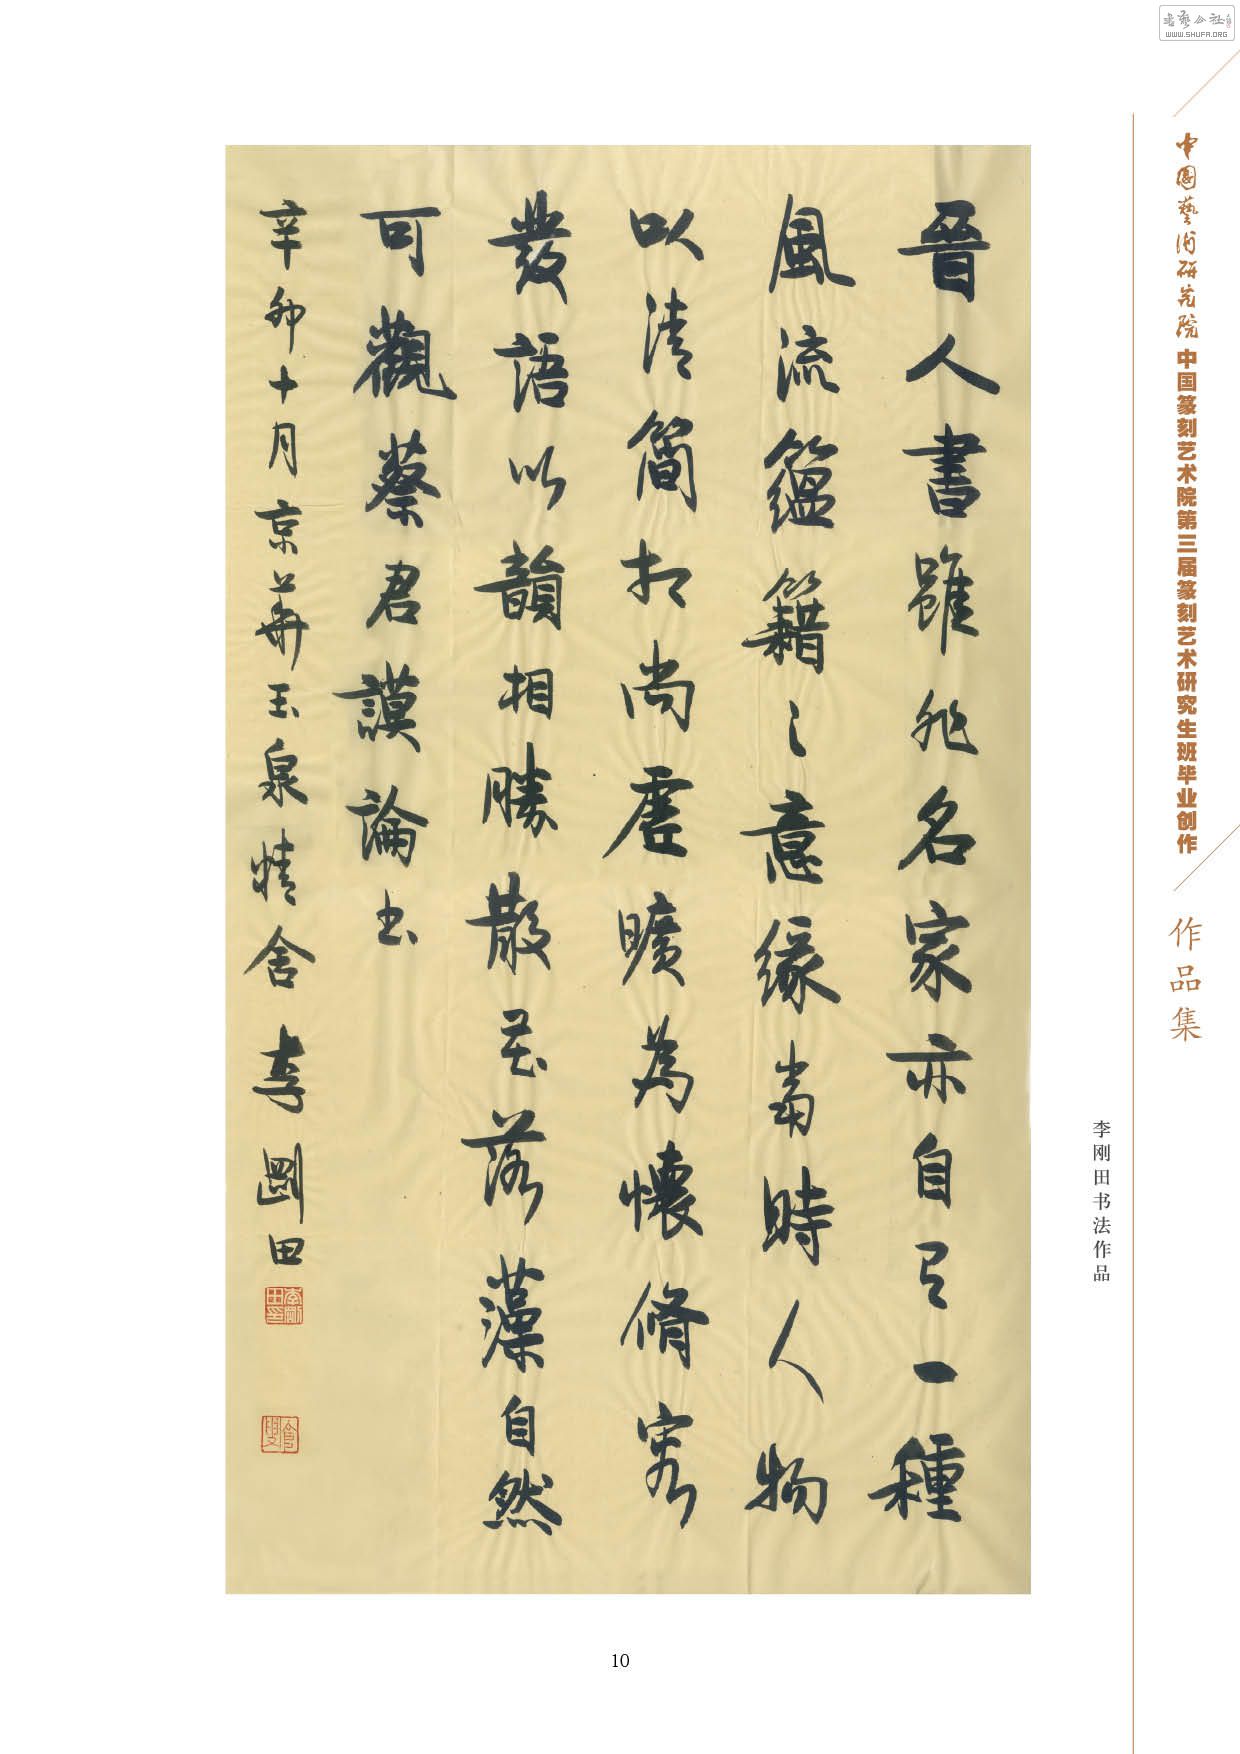 書藝公社
WWW.SHUFA.ORG
中國藝術研究院
中国篆刻艺术院第三届篆刻艺术研究生班毕业创作
作品集
李刚田书法作品
晉人書雖非名家亦自有一種
風流蘊籍之意緣當時人物
以清簡相尚虛曠為懷脩容
發語以韻相勝散花落藻自然
可觀蔡君謨論書
辛卯十月京華玉泉精舍李剛田
10